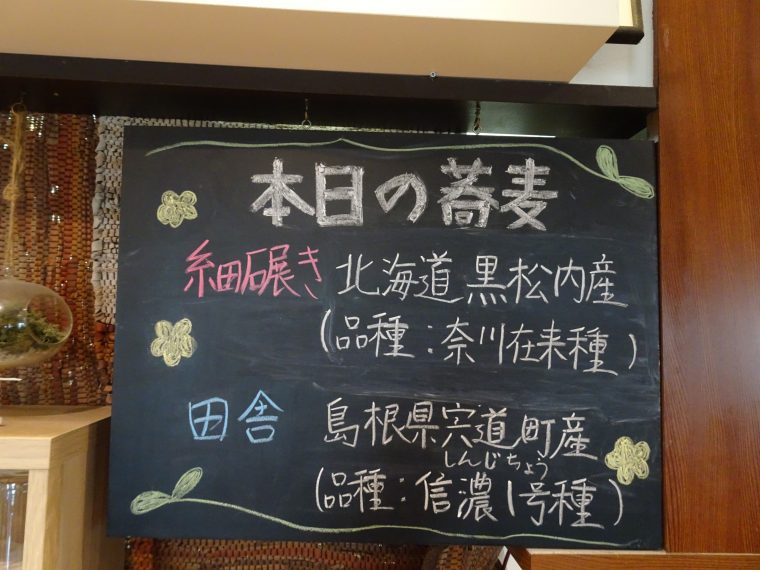 本日の蕎麦
細碾き 北海道 黒松内産
(品種:奈川在来種)
田舎 島根県宍道町産
しんじちょう
(品種:信濃1号種)